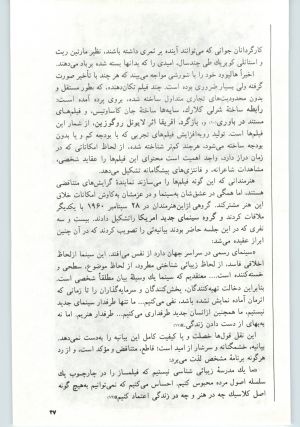 کارگردانان جوانی که می‌توانند آینده پر ثمری داشته باشند، نظیر مارتین ریت
و استانلی کوبریک طی چندسال، امیدی را که بدانها بسته شده بربادداده‌اند.
اخیراً هالیوود خود را با شورشی مواجه می‌بیند که هر چند با تأخیر صورت
گرفته ولی بسیار ضروری بوده است. چند فیلم تکان‌دهنده، که بطور مستقل و
بدون محدودیت‌های تجاری متداول ساخته شده، بروی پرده آمده است:
رابطه ساخته شرلی کلارک، سایه‌ها ساخته جان کاساوتیس، و فیلمهای
مستند در باوری، بازگرد، آفریقا اثر لایونل روگوزین، از شمار این
فیلم‌ها است. تولید روبه‌افزایش فیلم‌های تجربی که با بودجه کم و یا بدون
بودجه ساخته می‌شود، هرچند کمتر شناخته شده، از لحاظ امکاناتی که در
زمان دراز دارد، واجد اهمیت است محتوای این فیلم‌ها را عقاید شخصی،
مشاهدات شاعرانه، و فانتزی‌های پیشگامانه تشکیل می‌دهد.
هنرمندانی که این گونه فیلم‌ها را می‌سازند نمایندهٔ گرایش‌های متناقضی
هستند، اما همگی در عشق‌شان به‌سینما و در عزمشان به‌کاوش امکانات تازه
این هنر مشترکند. گروهی ازاین‌هنرمندان در ۲۸ سپتامبر ۱۹۶۰ با یکدیگر
ملاقات کردند و گروه سینمای جدید امریکا راتشکیل دادند. بیست و سه
نفری که در این جلسه حاضر بودند بیانیه‌ئی را تصویب کردند که در آن چنین
ابراز عقیده می‌شد:
«سینمای رسمی در سراسر جهان دارد از نفس می‌افتد. این سینما ازلحاظ
اخلاقی فاسد، از لحاظ زیبائی شناختی مطرود، از لحاظ موضوع، سطحی و
خسته‌کننده است... معتقدیم که سینما یک وسیلهٔ بیان مطلقاً شخصی است.
بنابراین دخالت تهیه‌کنندگان، پخش‌کنندگان و سرمایه‌گذاران را تا زمانی که
اثرمان آماده نمایش نشده باشد، نفی می‌کنیم... ما تنها طرفدار سینمای جدید
نیستیم، ما همچنین ازانسان جدید طرفداری می‌کنیم... طرفدار هنریم، اما نه
به‌بهای از دست دادن زندگی.»
این نقل قول‌ها خصلت و یا کیفیت کامل این بیانیه را به‌دست نمی‌دهد.
بیانیه، خشمگنانه و سرشار از امید است؛ قاطع، متناقض و مؤکد است، و از رد
هرگونه برنامهٔ مشخص لذت می‌برد:
«ما یک مدرسهٔ زیبائی شناسی نیستیم که فیلمساز را در چارچوب یک
سلسله اصول مرده محبوس کنیم. احساس می‌کنیم که نمی‌توانیم به‌هیچ گونه
اصل کلاسیک چه در هنر و چه در زندگی اعتماد کنیم»
۴۷